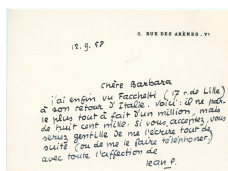 8, RUE DES ARÈNES. Ve
12.9.58
Chère Barbara
j'ai enfin vu Facchetti (17 r. de Lille)
à son retour d'Italie. Voici : il ne par-
le plus tout à fait d'un million, mais
de huit cent mille. Si vous acceptez, vous
serez gentille de me l'écrire tout de
suite (ou de me le faire téléphoner)
avec toute l'affection de
Jean P.